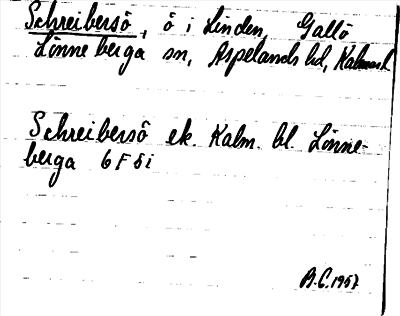 Schreibersö, ö i Linden, Gallö
Lönneberga sn, Aspelands hd, Kalmar l
Schreibersö ek. Kalm. bl. Lönne-
berga 6 F 5 i
B.C. 1957